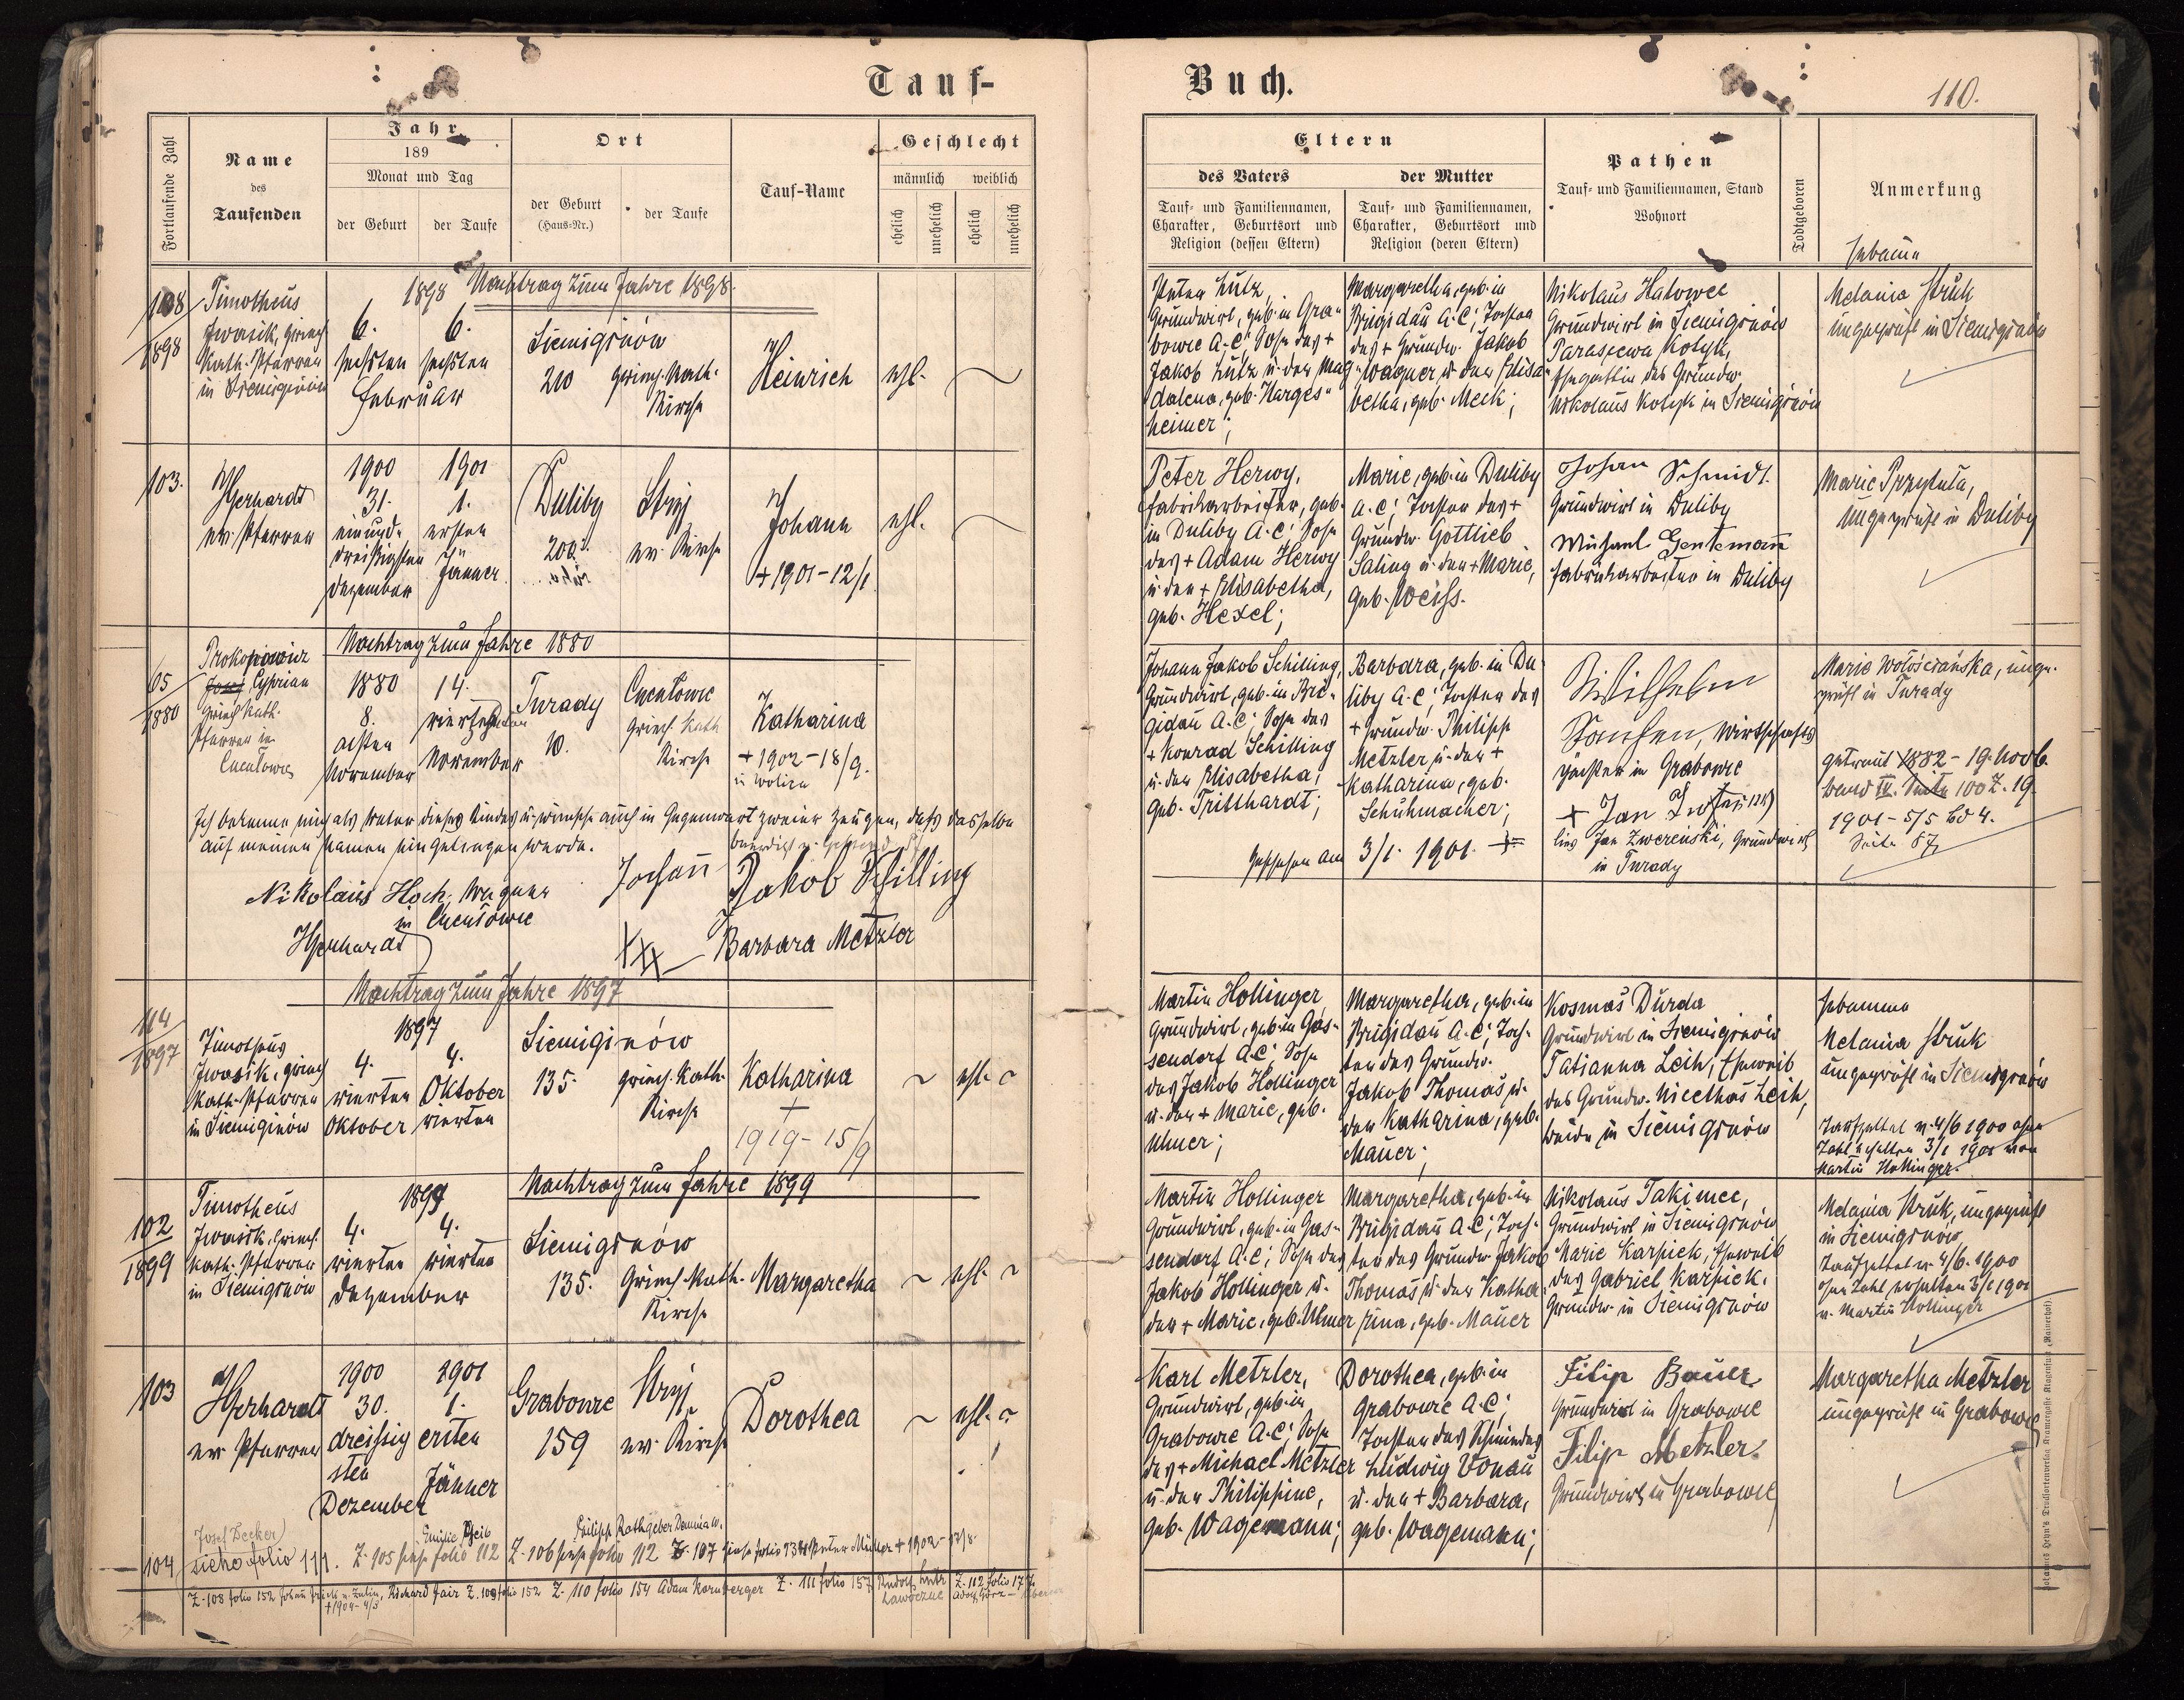 Tauf-
Buch.
110.
Fortlaufende Zahl
Name
des
Taufenden
Jahr
189
Monat und Tag
der Geburt
der Taufe
Ort
der Geburt
(Haus-Nr.)
der Taufe
Tauf-Name
Geschlecht
männlich
weiblich
ehelich
unehelich
ehelich
unehelich
Eltern
des Vaters
der Mutter
Tauf- und Familiennamen,
Charakter, Geburtsort und
Religion (dessen Eltern)
Tauf- und Familiennamen,
Charakter, Geburtsort und
Religion (deren Eltern)
Pathen
Tauf- und Familiennamen, Stand
Wohnort
Todtgeboren
Anmerkung
Hebamme
108
1898
Timotheus
Iwasik, griech
Kath. Pfarrer
in
1898 Nachtrag zum Jahre 1898.
6.
6.
sechsten
sechsten
Februar
210
griech. Kath.
Kirche
Heinrich
ehl.
Peter Lutz,
Grundwirt, geb. in Gra-
bowce A.C; Sohn des +
Jakob Lutz u. der Mag-
dalena, geb. Harges-
heimer;
Margaretha, geb. in
Brigidau A.C; Tochter
des + Grundw. Jakob
Wagner u. der Elisa-
betha, geb. Meck;
Nikolaus Hatowec
Grundwirt in
Parasiewa Kotyk,
Ehegattin des Grundw.
Nikolaus Kotyk in
Melania Struk
ungeprüft in
103.
Gerhardt
ev. Pfarrer
1900
31.
einund-
dreißigsten
Dezember
1901
1.
ersten
Jänner
Duliby
200
Stryj
ev. Kirche
Johann
+ 1901 - 12/1
ehl.
Peter Herwy,
Fabriksarbeiter, geb.
in Duliby A.C; Sohn
des + Adam Herwy
u. der + Elisabetha,
geb. Hexel;
Marie, geb. in Duliby
A.C; Tochter des +
Grundw. Gottlieb
Saling u. der + Marie,
geb. Weiss.
Johan Schmidt
Grundwirt in Duliby
Michael Gentemann
Fabriksarbeiter in Duliby
Marie Przytuła,
ungeprüft in Duliby
Nachtrag zum Jahre 1880
65
1880
Prokopowicz
Cyprian
griech Kath.
Pfarrer in
1880
8.
achten
November
14.
vierzehnten
November
Turady
10.
griech Kath
Kirche
Katharina
+ 1902 - 18/9.
in Wolica
Johann Jakob Schilling,
Grundwirt, geb. in Bri-
gidau A.C; Sohn des
+ Konrad Schilling
u. der Elisabetha,
geb. Tritthardt;
Barbara, geb. in Du-
liby A.C; Tochter des
+ Grundw. Philipp
Metzler u. der +
Katharina, geb.
Schuhmacher;
Wilhelm
Wirtschafts
pächter in Grabowce
+ Jan
Jan Zwereński, Grundwirt
in Turady
Marie Wołościańska, unge-
prüft in Turady
getraut 1882 - 19. Novb.
Band IV. Seite 100 Z. 19.
1901 - 5/5 Bd 4.
Seite 87
Ich bekenne mich als Vater dieses Kindes u. wünsche auch in Gegenwart zweier Zeugen, dass dasselbe
auf meinen Namen eingetragen werde.
Geschehen am 3/1. 1901.
Nikolaus Hoch, Wagner
in
Gerhardt
Johann Jakob Schilling
XXX Barbara Metzler
Nachtrag zum Jahre 1897
114
1897
Timotheus
Iwasik, griech
Kath. Pfarrer
in Siemiginów
1897
4.
vierten
Oktober
4.
Oktober
vierten
Siemiginów
135.
griech. Kath.
Kirche
Katharina
+
1919 - 15/9
ehl.
Martin Hollinger
Grundwirt, geb. in Gas-
sendorf A.C; Sohn
des Jakob Hollinger
u. der + Marie, geb.
Ulmer;
Margaretha, geb. in
Brigidau A.C; Toch-
ter des Grundw.
Jakob Thomas u.
der Katharina, geb.
Mauer;
Kosmas Durda
Grundwirt in
Tatianna Leih, Eheweib
des Grundw. Nicethas Leih,
beide in
Hebamme
Melania Struk
ungeprüft in
Taufzettel v. 4/6 1900 ohne
Zahl erhalten 3/1 1901 von
Martin Hollinger.
Nachtrag zum Jahre 1899
102
1899
Timotheus
Iwasik, Griech.
Kath. Pfarrer
in
1899
4.
vierten
4.
vierten
Dezember
135.
Griech. Kath.
Kirche
Margaretha
ehl.
Martin Hollinger
Grundwirt, geb. in Gas-
sendorf A.C; Sohn des
Jakob Hollinger u.
der + Marie, geb. Ulmer
Margaretha, geb. in
Brigidau A.C; Toch-
ter des Grundw. Jakob
Thomas u. der Katha-
rina, geb. Mauer
Nikolaus Takimec,
Grundwirt in
Marie Karpick, Eheweib
des Gabriel Karpick,
Grundw. in
Melania Struk, ungeprüft
in
Taufzettel v. 4/6. 1900
ohne Zahl erhalten 3/1 1901
v. Martin Hollinger
103
Gerhardt
ev. Pfarrer
1900
30.
dreissig
sten
Dezember
1901
1.
ersten
Jänner
Grabowce
159
Stryj
ev. Kirche
Dorothea
ehl.
Karl Metzler,
Grundwirt, geb. in
Grabowce A.C; Sohn
des + Michael Metzler
u. der Philippine,
geb. Wagemann;
Dorothea, geb. in
Grabowce A.C;
Tochter des Schmiedes
Ludwig Vonau
u. der + Barbara,
geb. Wagemann;
Filip Bauer
Grundwirt in Grabowce
Filip Metzler.
Grundwirt in Grabowce
Margaretha Metzler
ungeprüft in Grabowce
Josef Decker
Emilie Geib
Philipp Rathgeber
104 siehe folio 111. Z. 105 siehe folio 112 Z. 106 siehe folio 112 Z. 107 siehe folio Peter Müller + 1902
Z. 108 folio 152 Richard Jair Z. 109 folio 152 Z. 110 folio 154 Adam Kornberger Z. 111 folio 157 Rudolf Z. 112 folio 177
+ 1904 - 4/3
Ławoczne